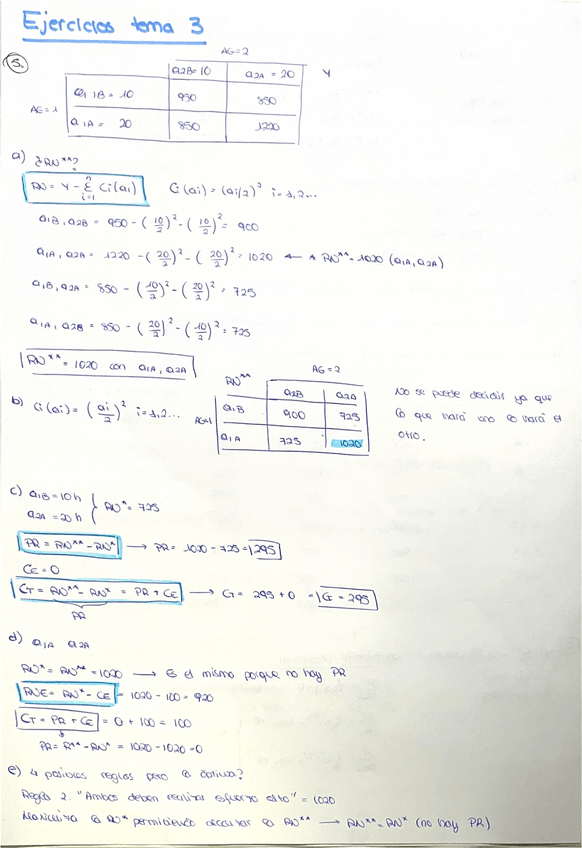 Ejercicios tema 3
5.
AG=2
a2B=10 a2A = 20 Y
AG=1 a1B = 10 950 850
a1A = 20 850 1220
a) ¿RN**?
RN = Y - Σ Ci(ai) n i=1 Ci(ai) = (ai/2)² i=1,2...
a1B, a2B = 950 - (10/2)² - (10/2)² = 900
a1A, a2A = 1220 - (20/2)² - (20/2)² = 1020 ← * RN** = 1020 (a1A, a2A)
a1B, a2A = 850 - (10/2)² - (20/2)² = 725
a1A, a2B = 850 - (20/2)² - (10/2)² = 725
RN** = 1020 con a1A, a2A
b) Ci(ai) = (ai/2)² i=1,2...
RN** AG=2
a2B a2A
AG=1 a1B 900 725
a1A 725 1020
No se puede decidir ya que
lo que hará uno lo hará el
otro.
c) a1B = 10h
a2A = 20h } RN* = 725
PR = RN** - RN* → PR = 1020 - 725 = 295
CE = 0
CT = RN** - RN* = PR + CE → CT = 295 + 0 = CT = 295
PR
d) a1A a2A
RN* = RN** = 1020 → Es el mismo porque no hay PR
RNE = RN* - CE = 1020 - 100 = 920
CT = PR + CE = 0 + 100 = 100
PR = R** - RN* = 1020 - 1020 = 0
e) 4 posibles reglas pero la óptima?
Regla 2. "Ambos deben realizar esfuerzo alto" = 1020
Maximiza la RN* permitiendo alcanzar la RN** → RN** = RN* (no hay PR)